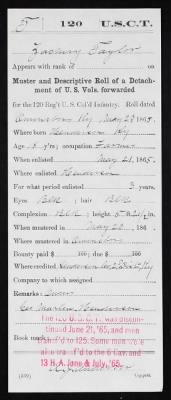 T | 120 | U.S.C.T.
Zachary Taylor
Appears with rank of on
Muster and Descriptive Roll of a Detach-
ment of U. S. Vols. forwarded
for the 120 Reg't U. S. Col'd Infantry. Roll dated
Owensboro Ky May 28 1865.
Where born Henderson Ky
Age y'rs; occupation Farmer
When enlisted May 21, 1865.
Where enlisted Henderson
For what period enlisted 3 years.
Eyes Blk ; hair Blk
Complexion Blk ; height 5 ft. in.
When mustered in May 28 , 186 .
Where mustered in Owensboro
Bounty paid $ 100; due $ 100
Where credited Henderson Ky
Company to which assigned
Remarks:
Henderson
The 120 U.S.C.T. was discon-
tinued June 21, '65, and men
transf'd to 125. Some men were
also transf'd to the 6 Cav. and
13 H. A. June & July, '65.
Book mark:
(339) Copyist.